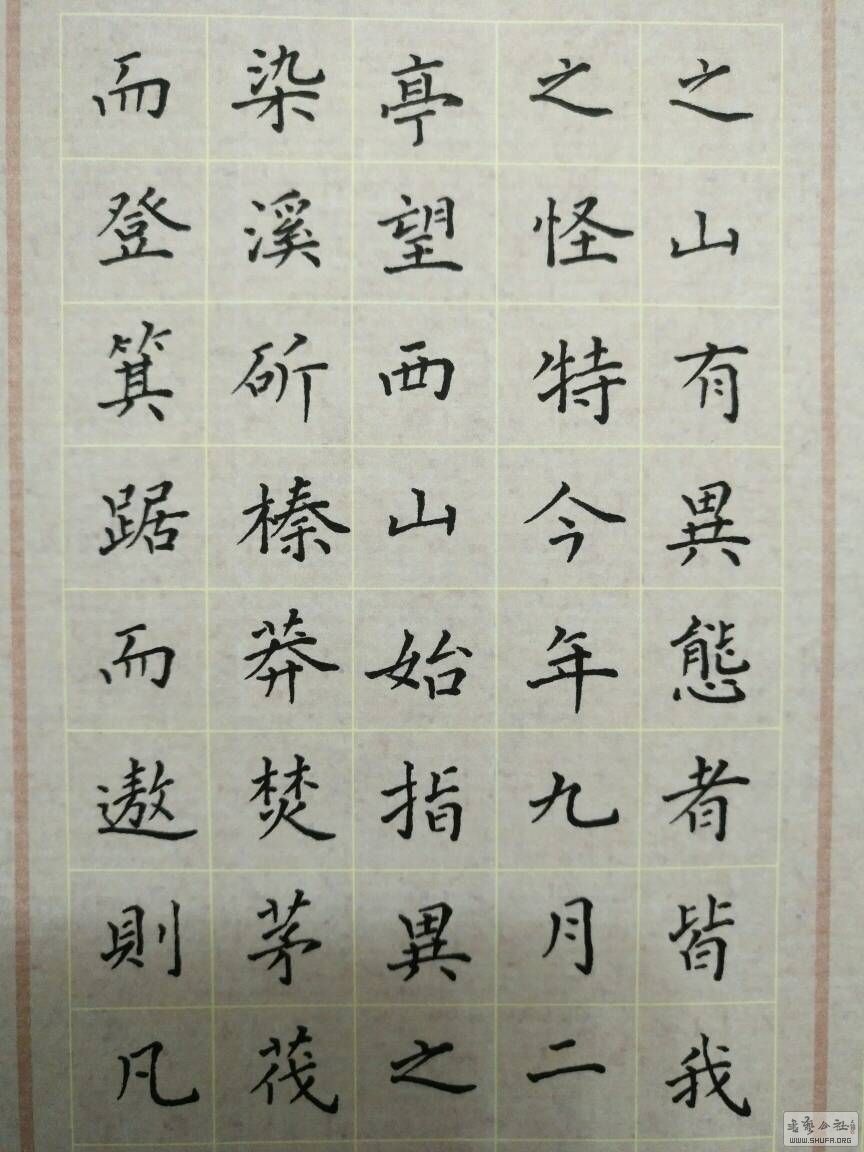 之山有異態者皆我
之怪特今年九月二
亭望西山始指異之
染溪斫榛莽焚茅茷
而登箕踞而遨則凡
书艺公社
WWW.SHUFA.ORG